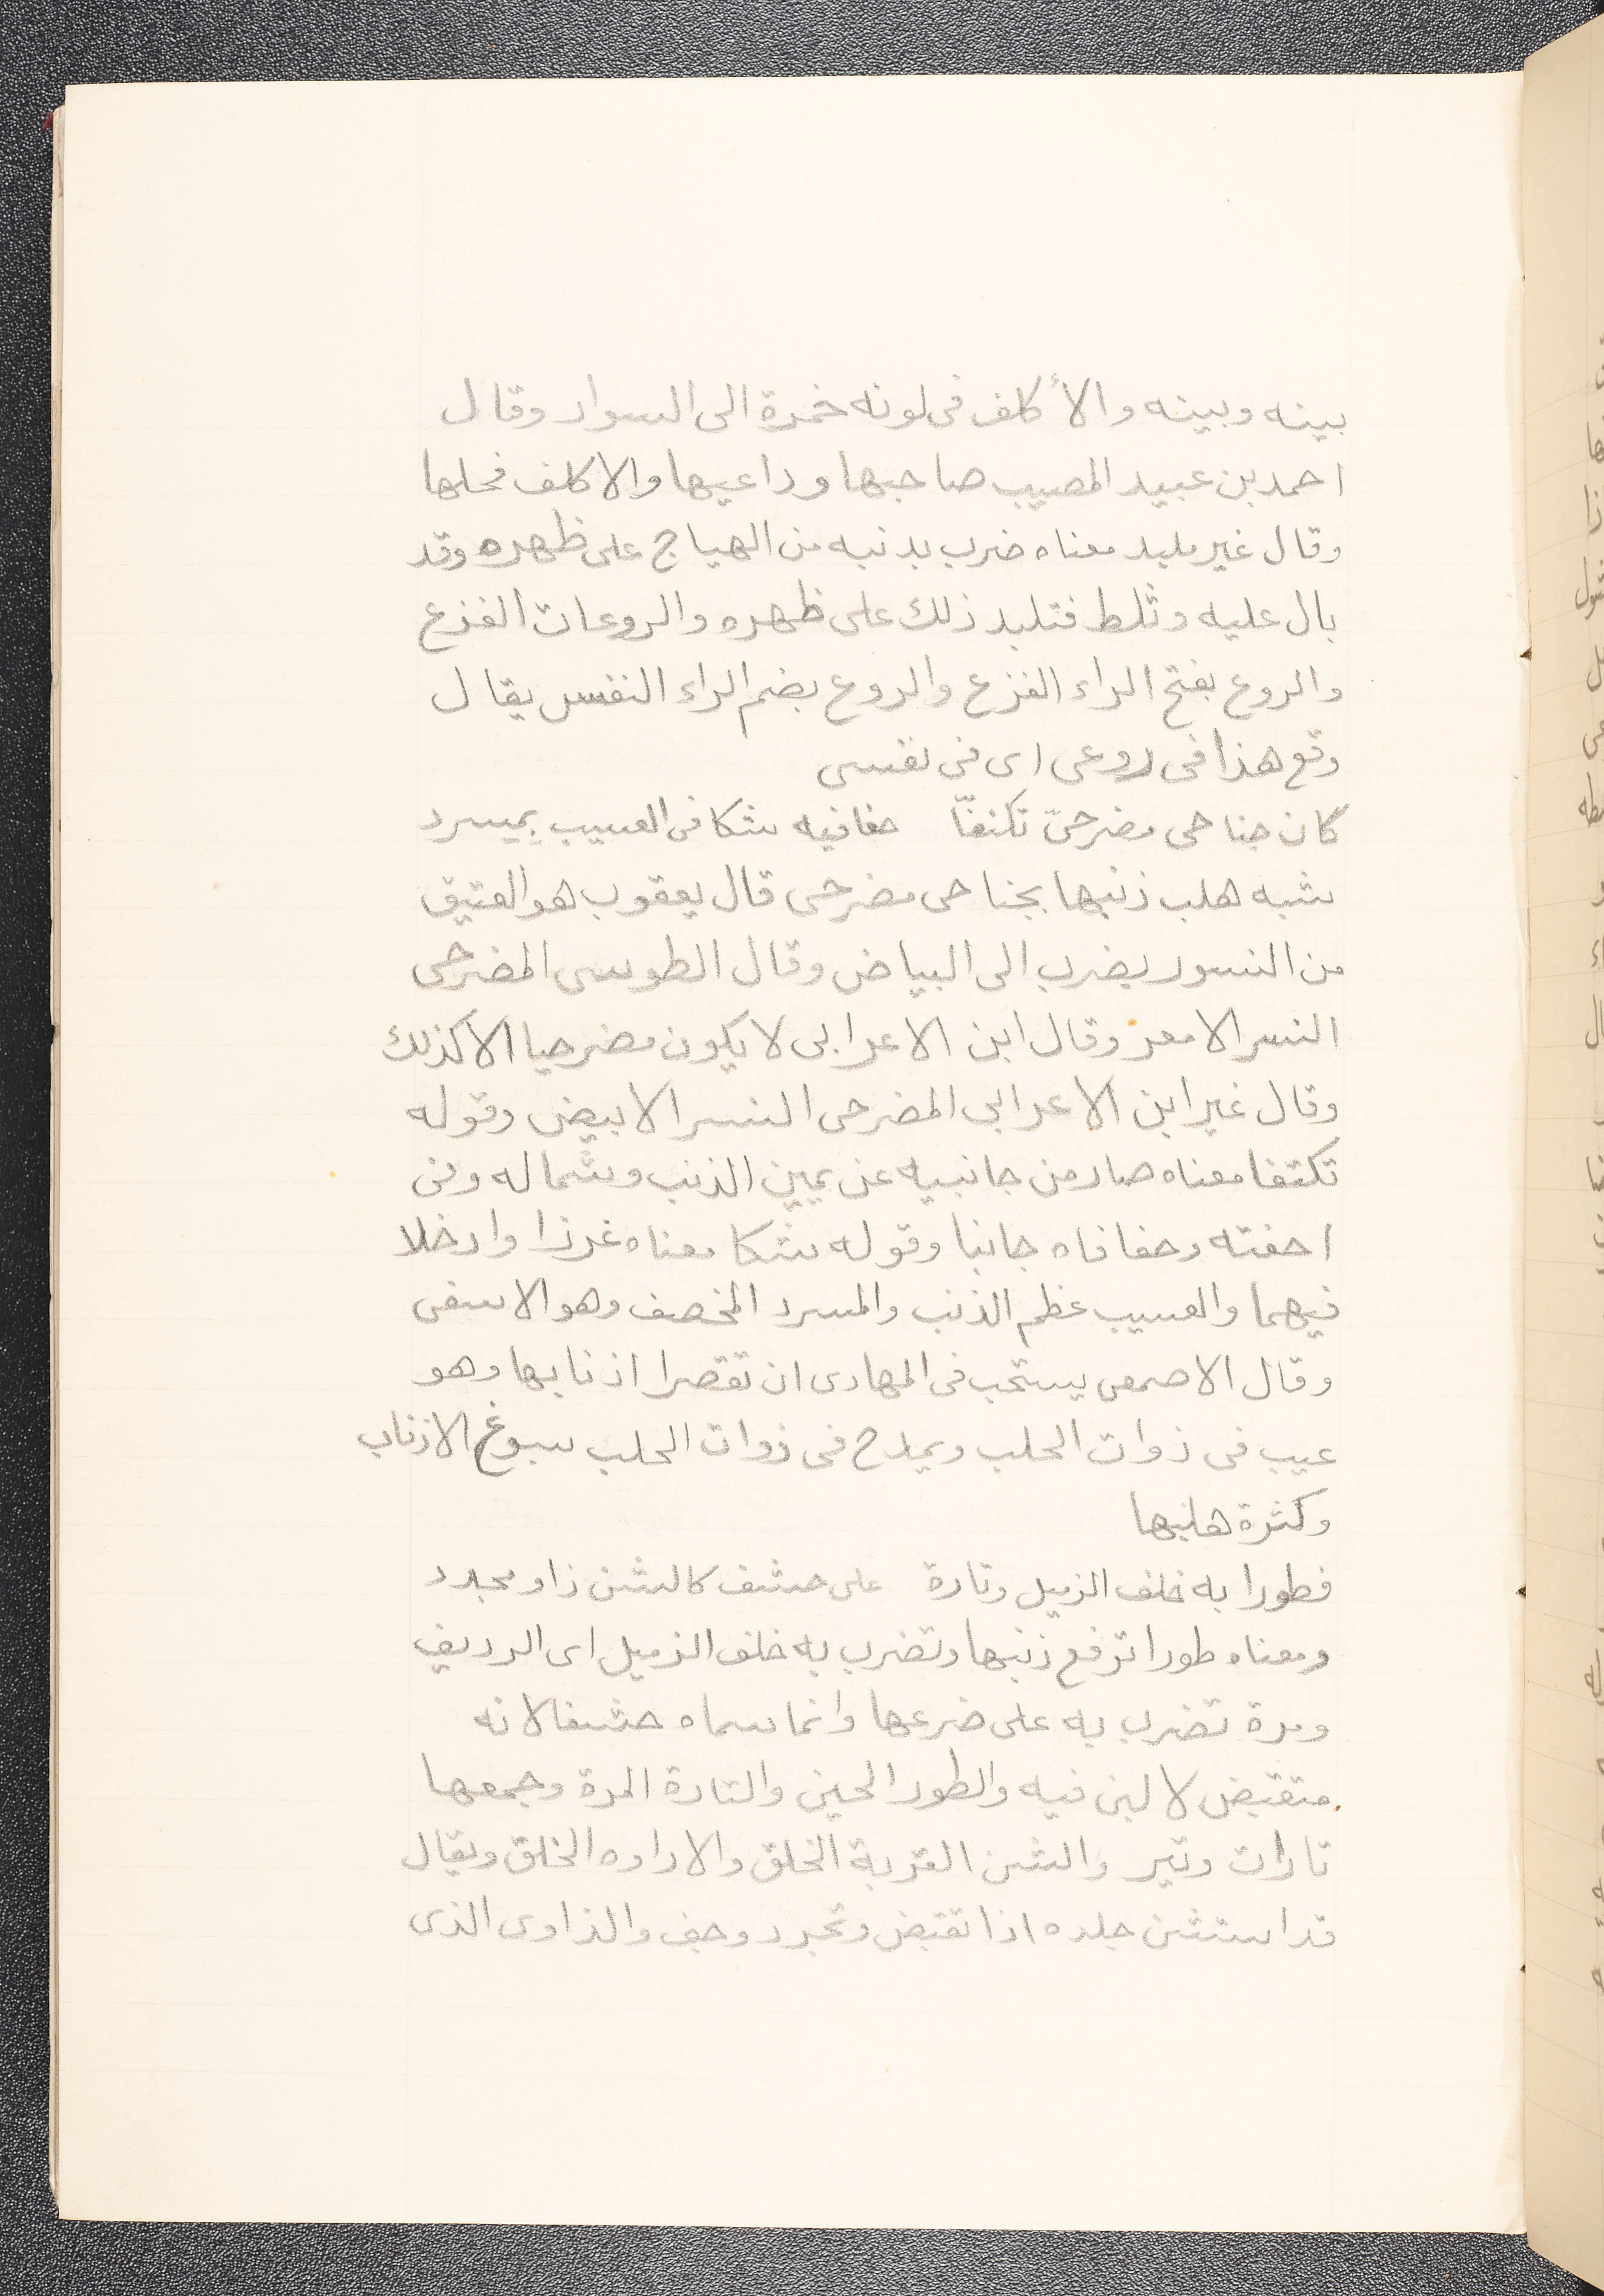 بينه وبينه والأكلف فى لونه خمرة الى السواد وقال
احمد بن عبيد المصيب صاحبها وراعيها والاكلف فحلها
وقال غير ملبد معناه ضرب بدنبه من الهياج على ظهره وقد
بال عليه وثلط فتلبد ذلك على ظهره والروعات الفزع
والروع بفتح الراء الفزع والروع بضم الراء النفس يقال
وقع هذا فى روعى اى فى نفسى
كان جناحى مضرحىّ تكنفّا حفافيه شكا فى العسيب بمسرد
شبه هلب ذنبها بجناحى مضرحى قال يعقوب هو العتيق
من النسور يضرب الى البياض وقال الطوسى المضرحى
النسر الامعر وقال ابن الاعرابى لا يكون مضرحيا الا كذلك
وقال غير ابن الاعرابى المضرحى النسر الابيض وقوله
تكتفا معناه صار من جانبيه عن يمين الذنب وشماله وفى
احفته وحفافاه جانبا وقوله شكا معناه غرزا وادخلا
فيهما والعسيب عظم الذنب والمسرد المخصف وهو الاسفى
وقال الاصمعى يستحب فى المهارى ان تقصرا اذنابها وهو
عيب فى ذوات الحلب ويمدح فى ذوات الحلب سبوغ الاذناب
وكثرة هلبها
فطورا به خلف الزميل وتارة على حشف كالشن ذاو مجدد
ومعناه طورا ترفع ذنبها وتضرب به خلف الزميل اى الرديف
ومرة تضرب به على ضرعها وانما سماه حشفا لانه
متقبض لا لبن فيه والطور الحين والتارة المرة وجمعها
تارات وتير والشن القربة الخلق والاداوه الخلق ويقال
قد استشن جلده اذا تقبض وتجرد وجف والذاوى الذى